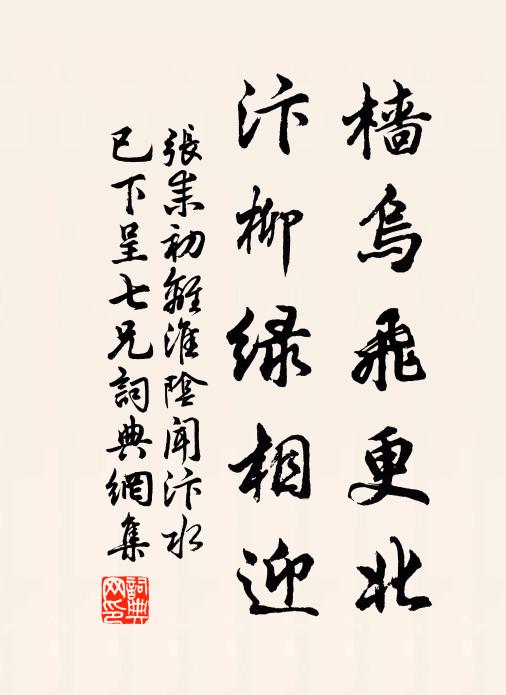 檣烏飛更北
汴柳綠相迎
張耒初離淮陰聞汴水
已下呈七兄詞典網集
詞典
网印